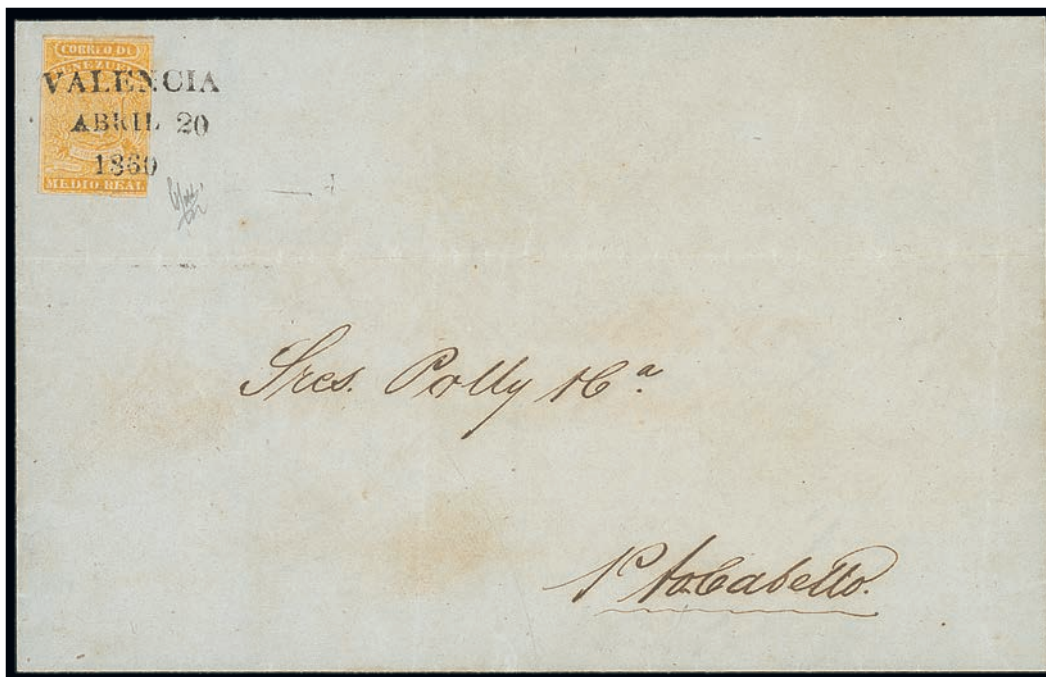 CORREO DE
VENEZUELA
VALENCIA
ABRIL 20
1860
MEDIO REAL
Sres. Polly &C.ª
PtoCabello.